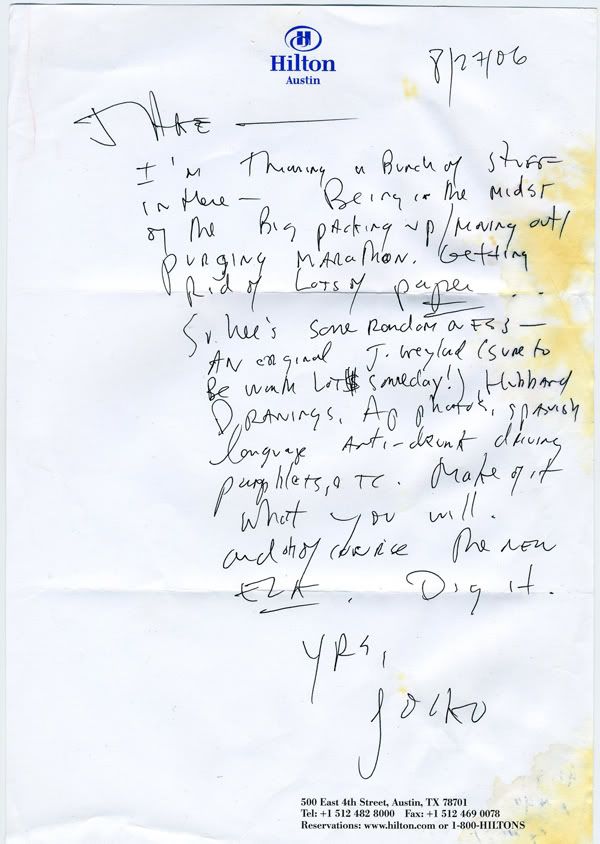 Hilton
Austin
8/27/06
J HAE
I'm Throwing a Bunch of STUFF
in Here — Being in the MIDST
of the Big packing up/moving out/
purging MARAthon. Getting
Rid of Lots of paper...
So here's some Random
AN original J. (sure to
Be worth LOT$ someday!) Hubbard
DRAWINGS, AP photos, spanish
language anti-drunk driving
pamphlets, eTC. Make of it
what you will.
and of course the new
ELK. Dig it.
YRS,
JOCKO
500 East 4th Street, Austin, TX 78701
Tel: +1 512 482 8000 Fax: +1 512 469 0078
Reservations: www.hilton.com or 1-800-HILTONS